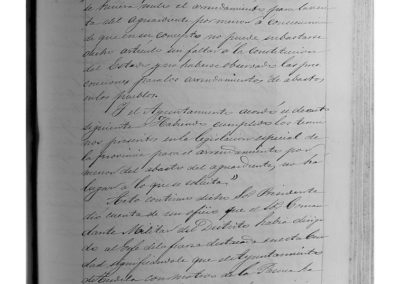 se tuviera nulo el arrendamiento para la ven
ta del aguardiente por menor a consecuencia
de que en su concepto no puede subastarse
dicho articulo sin faltar a la Constitucion
del Estado y no haberse observado las pre
venciones para los arrendamientos de abastos
en los pueblos.
Y el Ayuntamiento acordó el decreto
siguiente "Habiendo cumplidos los termi
nos prescritos en la legislacion especial de
la provincia para el arrendamiento por
menor del abasto del aguardiente, no ha
lugar a lo que se solicita."
Acto continuo dicho Sor Presidente
dio cuenta de un oficio que el Sor Coman
dante Militar del Distrito habia dirigi
do al Gefe de la fuerza destacada en esta Ciu
dad significandole que el Ayuntamiento
con motivo de la